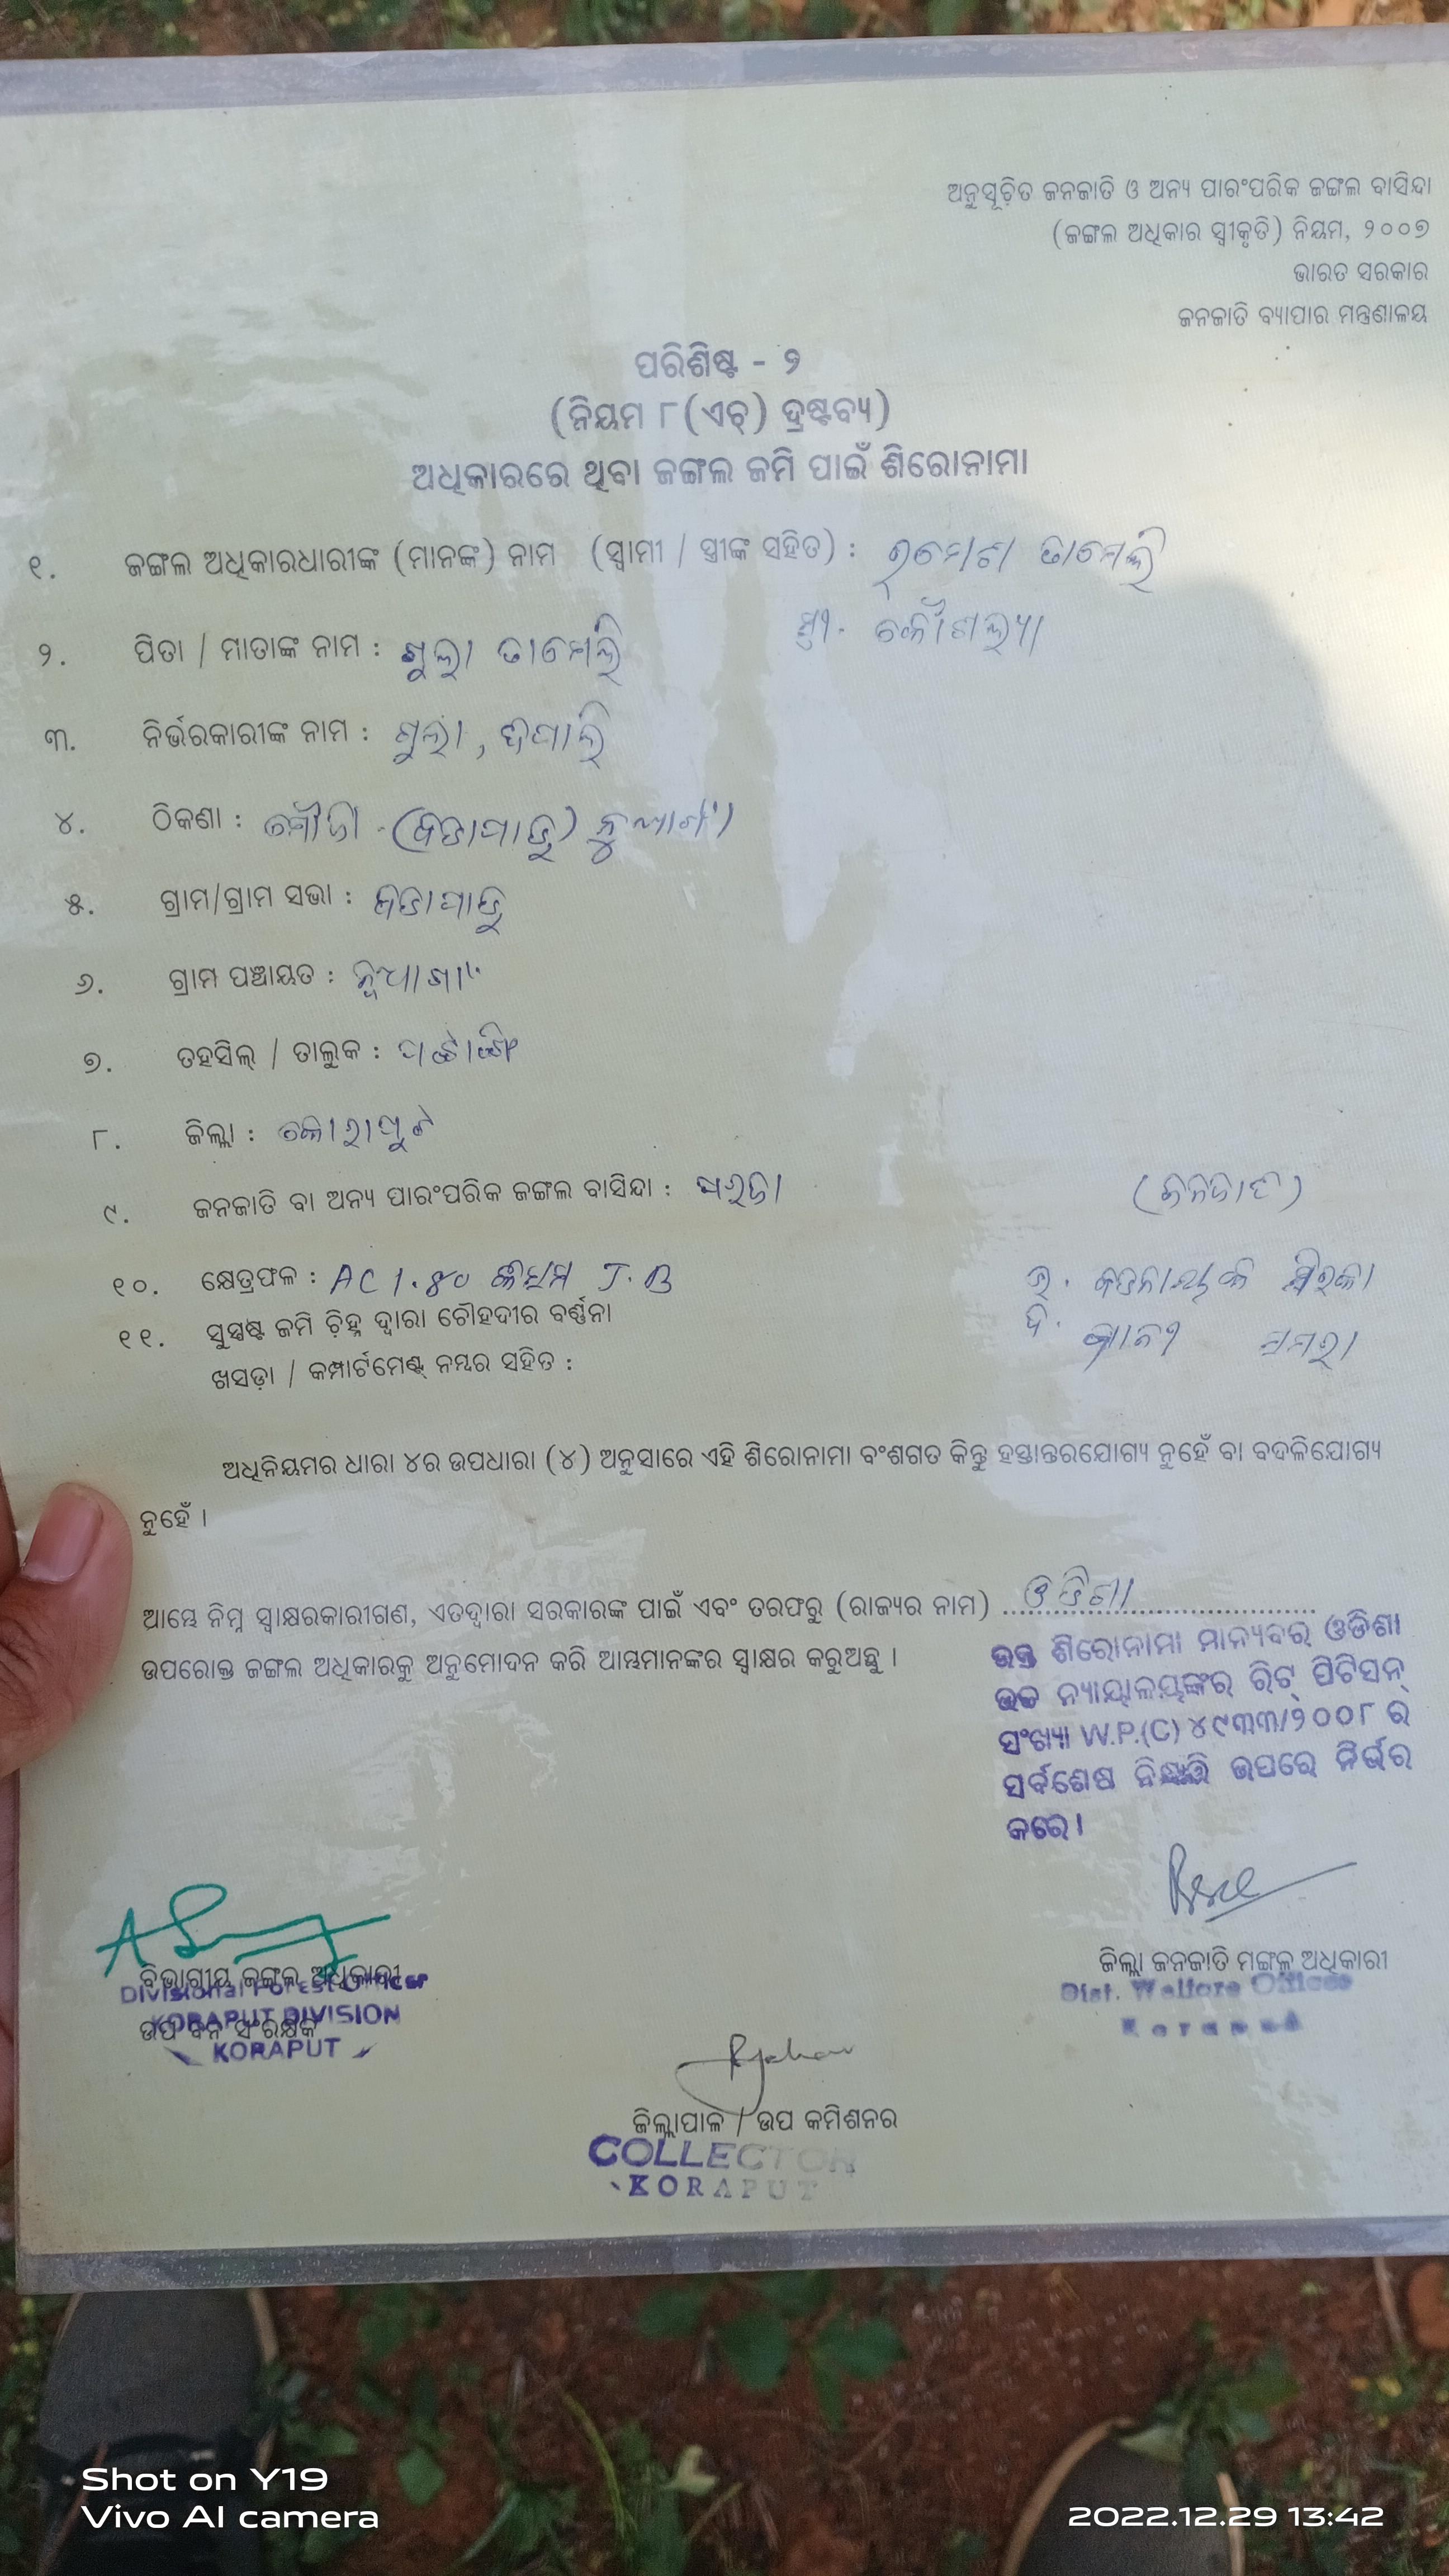 ଅନୁସୂଚିତ ଜନଜାତି ଓ ଅନ୍ୟ ପାରଂପରିକ ଜଙ୍ଗଲ ବାସିନ୍ଦା
(ଜଙ୍ଗଲ ଅଧିକାର ସ୍ୱୀକୃତି) ନିୟମ, ୨୦୦୭
ଭାରତ ସରକାର
ଜନଜାତି ବ୍ୟାପାର ମନ୍ତ୍ରଣାଳୟ
ପରିଶିଷ୍ଟ - ୨
(ନିୟମ ୮(ଏଚ୍) ଦ୍ରଷ୍ଟବ୍ୟ)
ଅଧିକାରରେ ଥିବା ଜଙ୍ଗଲ ଜମି ପାଇଁ ଶିରୋନାମା
୧. ଜଙ୍ଗଲ ଅଧିକାରଧାରୀଙ୍କ (ମାନଙ୍କ) ନାମ (ସ୍ୱାମୀ / ସ୍ତ୍ରୀଙ୍କ ସହିତ) :
ସ୍ତ୍ରୀ. କୌଶଲ୍ୟା
୨. ପିତା / ମାତାଙ୍କ ନାମ :
୩. ନିର୍ଭରକାରୀଙ୍କ ନାମ :
୪. ଠିକଣା :
୫. ଗ୍ରାମ/ଗ୍ରାମ ସଭା :
୬. ଗ୍ରାମ ପଞ୍ଚାୟତ : ନୂଆଗାଁ
୭. ତହସିଲ୍ / ତାଲୁକ : ପଟାଙ୍ଗି
୮. ଜିଲ୍ଲା : କୋରାପୁଟ
୯. ଜନଜାତି ବା ଅନ୍ୟ ପାରଂପରିକ ଜଙ୍ଗଲ ବାସିନ୍ଦା : ପରଜା (ଜନଜାତି)
୧୦. କ୍ଷେତ୍ରଫଳ : AC 1.୪୦ କିସମ J.B
୧୧. ସୁସ୍ପଷ୍ଟ ଜମି ଚିହ୍ନ ଦ୍ୱାରା ଚୌହଦୀର ବର୍ଣ୍ଣନା
ଖସଡ଼ା / କମ୍ପାର୍ଟମେଣ୍ଟ୍ ନମ୍ବର ସହିତ :
ଅଧିନିୟମର ଧାରା ୪ର ଉପଧାରା (୪) ଅନୁସାରେ ଏହି ଶିରୋନାମା ବଂଶଗତ କିନ୍ତୁ ହସ୍ତାନ୍ତରଯୋଗ୍ୟ ନୁହେଁ ବା ବଦଳିଯୋଗ୍ୟ
ନୁହେଁ ।
ଆମ୍ଭେ ନିମ୍ନ ସ୍ୱାକ୍ଷରକାରୀଗଣ, ଏତଦ୍ୱାରା ସରକାରଙ୍କ ପାଇଁ ଏବଂ ତରଫରୁ (ରାଜ୍ୟର ନାମ) ଓଡିଶା
ଉପରୋକ୍ତ ଜଙ୍ଗଲ ଅଧିକାରକୁ ଅନୁମୋଦନ କରି ଆମ୍ଭମାନଙ୍କର ସ୍ୱାକ୍ଷର କରୁଅଛୁ ।
ଉକ୍ତ ଶିରୋନାମା ମାନ୍ୟବର ଓଡିଶା
ଉଚ୍ଚ ନ୍ୟାୟାଳୟଙ୍କର ରିଟ୍ ପିଟିସନ୍
ସଂଖ୍ୟା W.P.(C) ୪୯୩୩/୨୦୦୮ ର
ସର୍ବଶେଷ ନିଷ୍ପତ୍ତି ଉପରେ ନିର୍ଭର
କରେ।
ବିଭାଗୀୟ ଜଙ୍ଗଲ ଅଧିକାରୀ
Divisional Forest Officer
ଉପ ବନ ସଂରକ୍ଷକ
KORAPUT DIVISION
KORAPUT
ଜିଲ୍ଲା ଜନଜାତି ମଙ୍ଗଳ ଅଧିକାରୀ
Dist. Welfare Officer
Koraput
ଜିଲ୍ଲାପାଳ / ଉପ କମିଶନର
COLLECTOR
KORAPUT
Shot on Y19
Vivo AI camera
2022.12.29 13:42